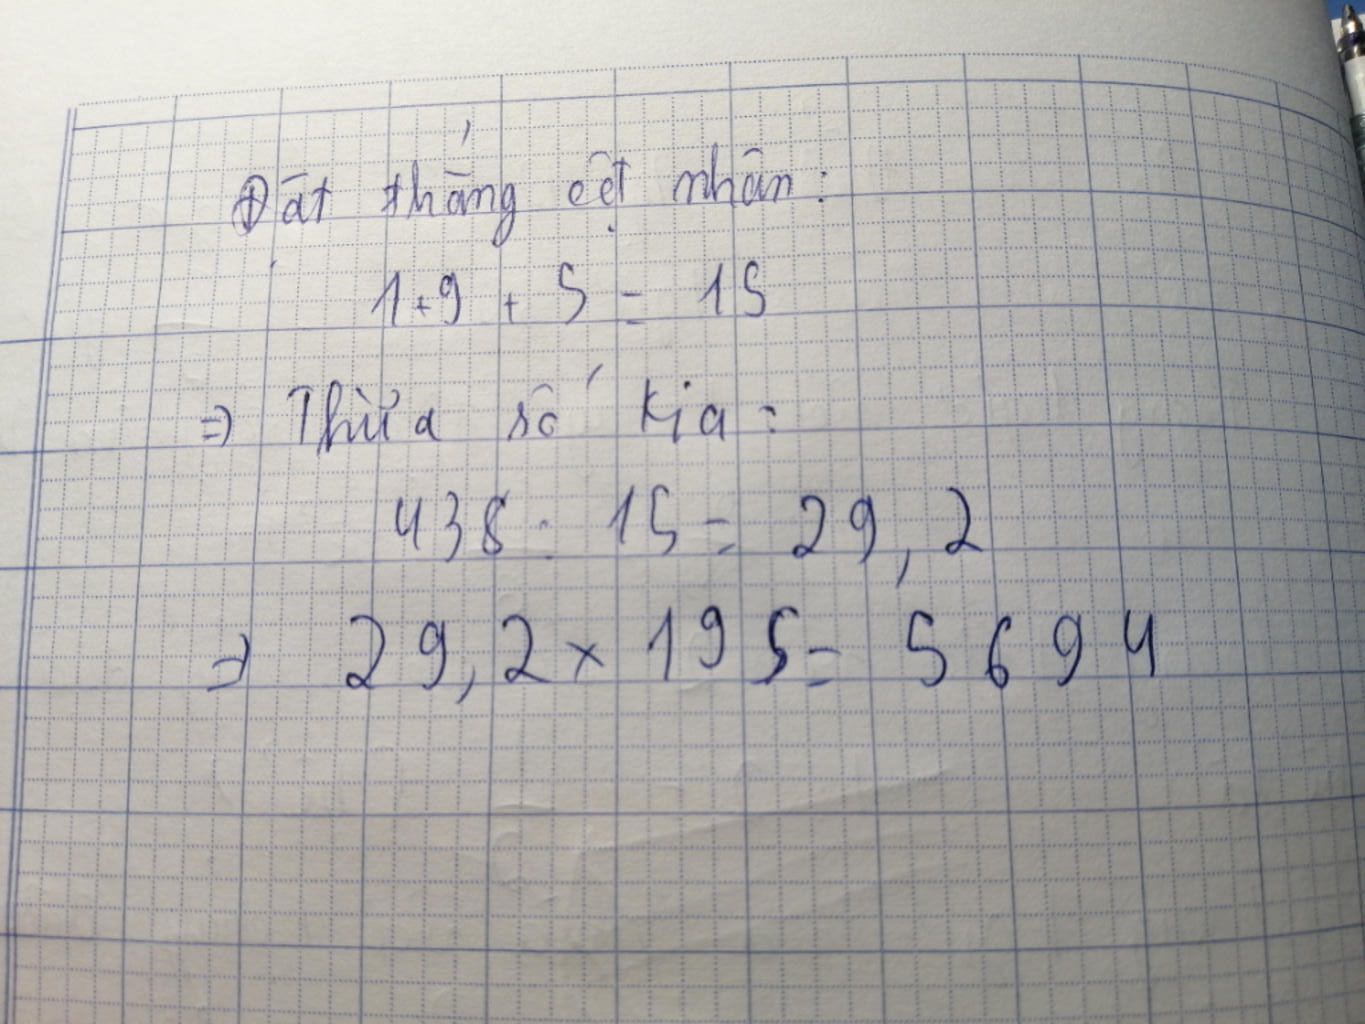 Đặt thẳng cột nhân:
1+9 + 5 = 15
=> Thừa số kia:
438 : 15 = 29,2
=> 29,2 x 195 = 5694